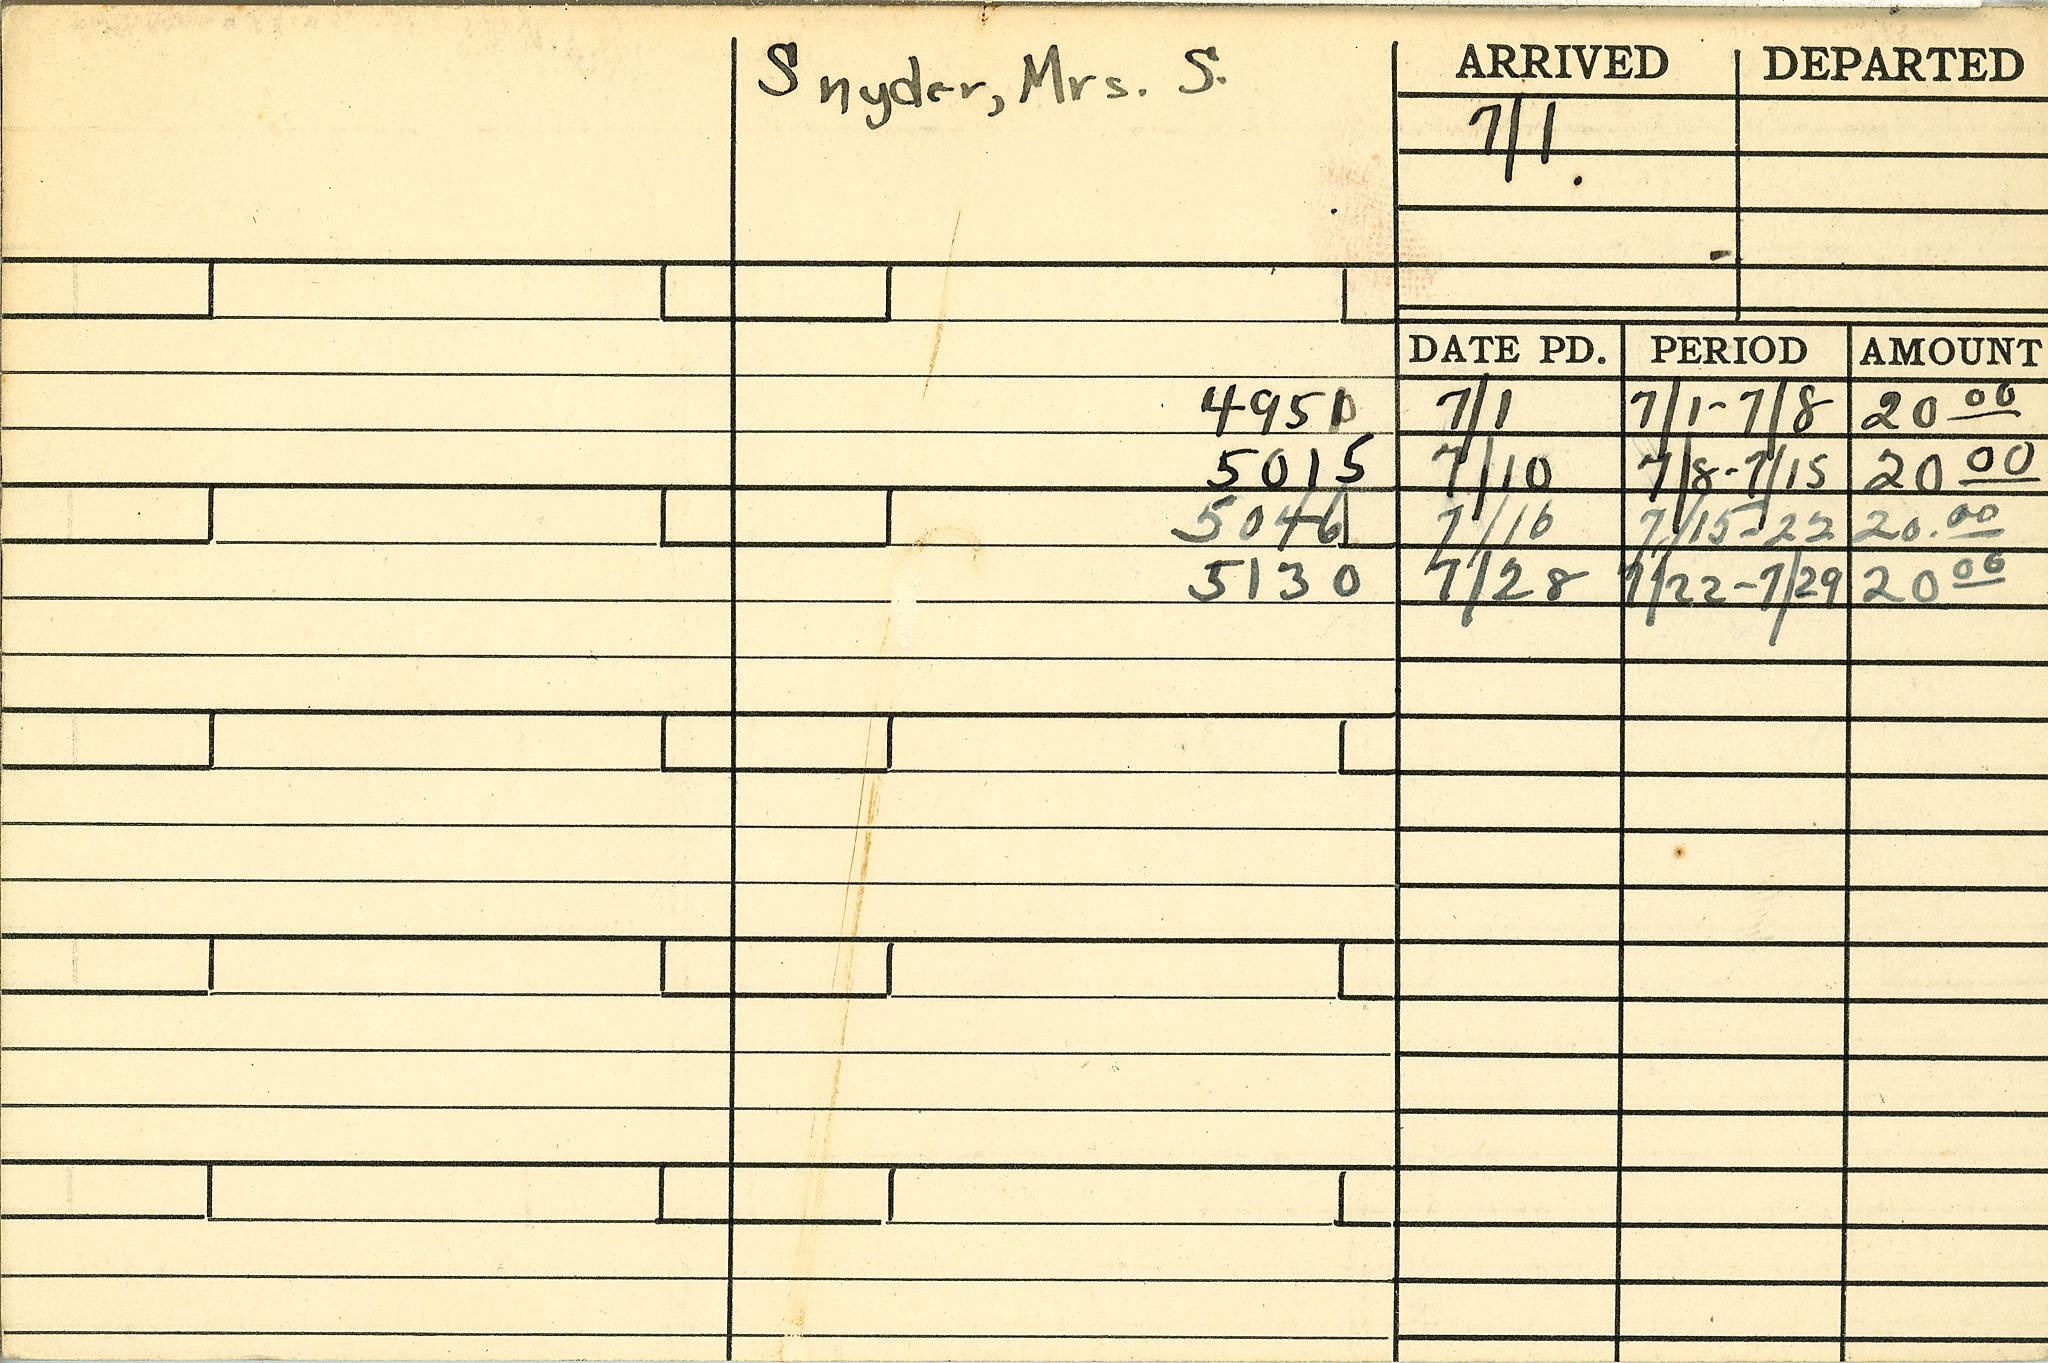 Snyder, Mrs. S.
ARRIVED DEPARTED
7/1
DATE PD. PERIOD AMOUNT
4950 7/1 7/1-7/8 20 00
5015 7/10 7/8-7/15 20 00
5046 7/16 7/15-22 20.00
5130 7/28 7/22-7/29 20 00